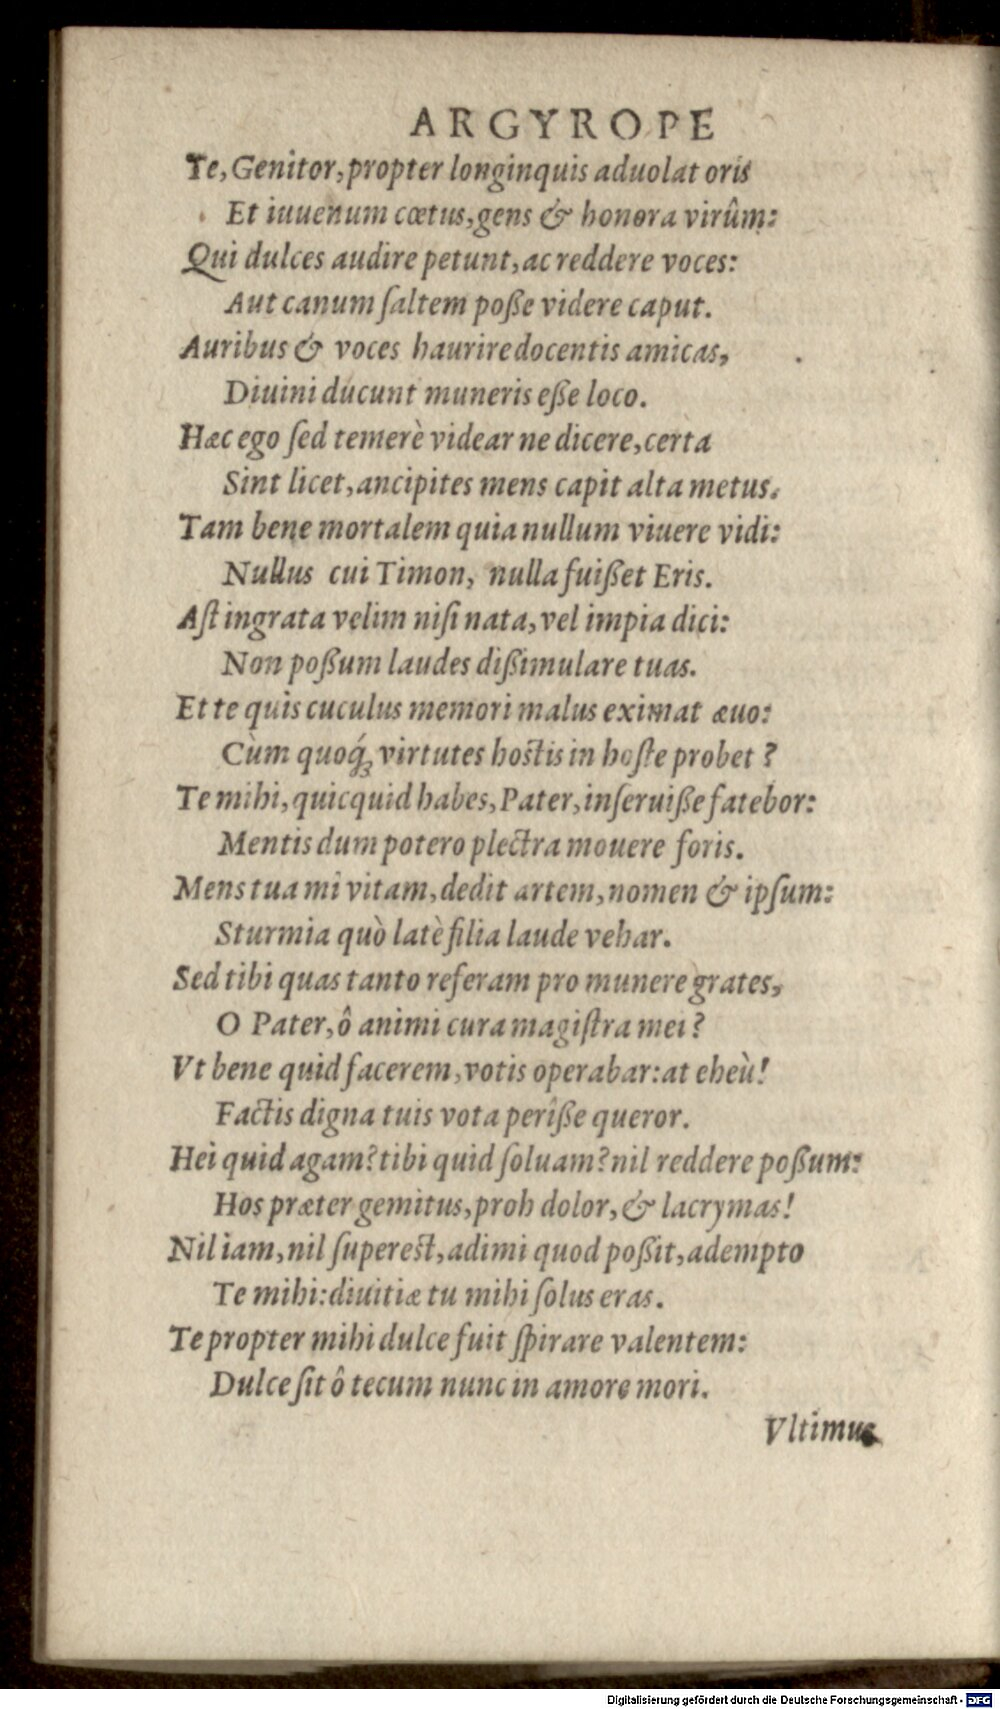 ARGYROPE
Te, Genitor, propter longinquis aduolat oris
Et iuuenum cœtus, gens & honora virûm:
Qui dulces audire petunt, ac reddere voces:
Aut canum ſaltem poſſe videre caput.
Auribus & voces haurire docentis amicas,
Diuini ducunt muneris eſſe loco.
Hæc ego ſed temerè videar ne dicere, certa
Sint licet, ancipites mens capit alta metus.
Tam bene mortalem quia nullum viuere vidi:
Nullus cui Timon, nulla fuiſſet Eris.
Aſt ingrata velim niſi nata, vel impia dici:
Non poſſum laudes diſſimulare tuas.
Et te quis cuculus memori malus eximat æuo:
Cùm quoq́ꝫ virtutes hoſtis in hoſte probet ?
Te mihi, quicquid habes, Pater, inſeruiſſe fatebor:
Mentis dum potero plectra mouere foris.
Mens tua mî vitam, dedit artem, nomen & ipſum:
Sturmia quò latè filia laude vehar.
Sed tibi quas tanto referam pro munere grates,
O Pater, ô animi cura magiſtra mei ?
Vt bene quid facerem, votis operabar: at eheù!
Factis digna tuis vota periſſe queror.
Hei quid agam? tibi quid ſoluam? nil reddere poſſum:
Hos præter gemitus, proh dolor, & lacrymas!
Nil iam, nil ſupereſt, adimi quod poſſit, adempto
Te mihi: diuitiæ tu mihi ſolus eras.
Te propter mihi dulce fuit ſpirare valentem:
Dulce ſit ô tecum nunc in amore mori.
Vltimus
Digitalisierung gefördert durch die Deutsche Forschungsgemeinschaft - DFG